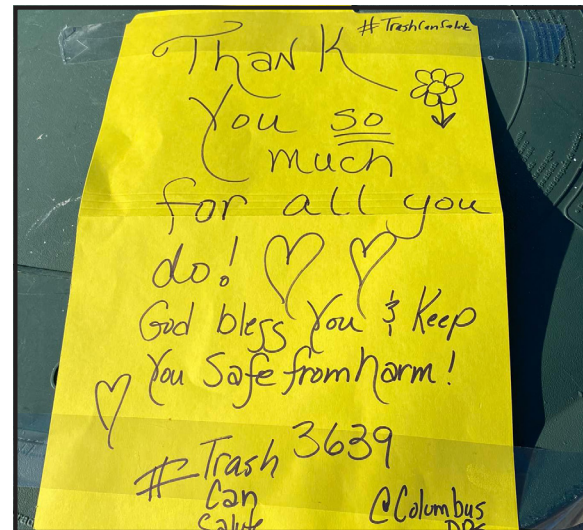 #TrashCanSalute
Thank
You so
much
for all you
do!
God bless you & Keep
You Safe from harm!
3639
#Trash
Can
Salute
@Columbus
DPS